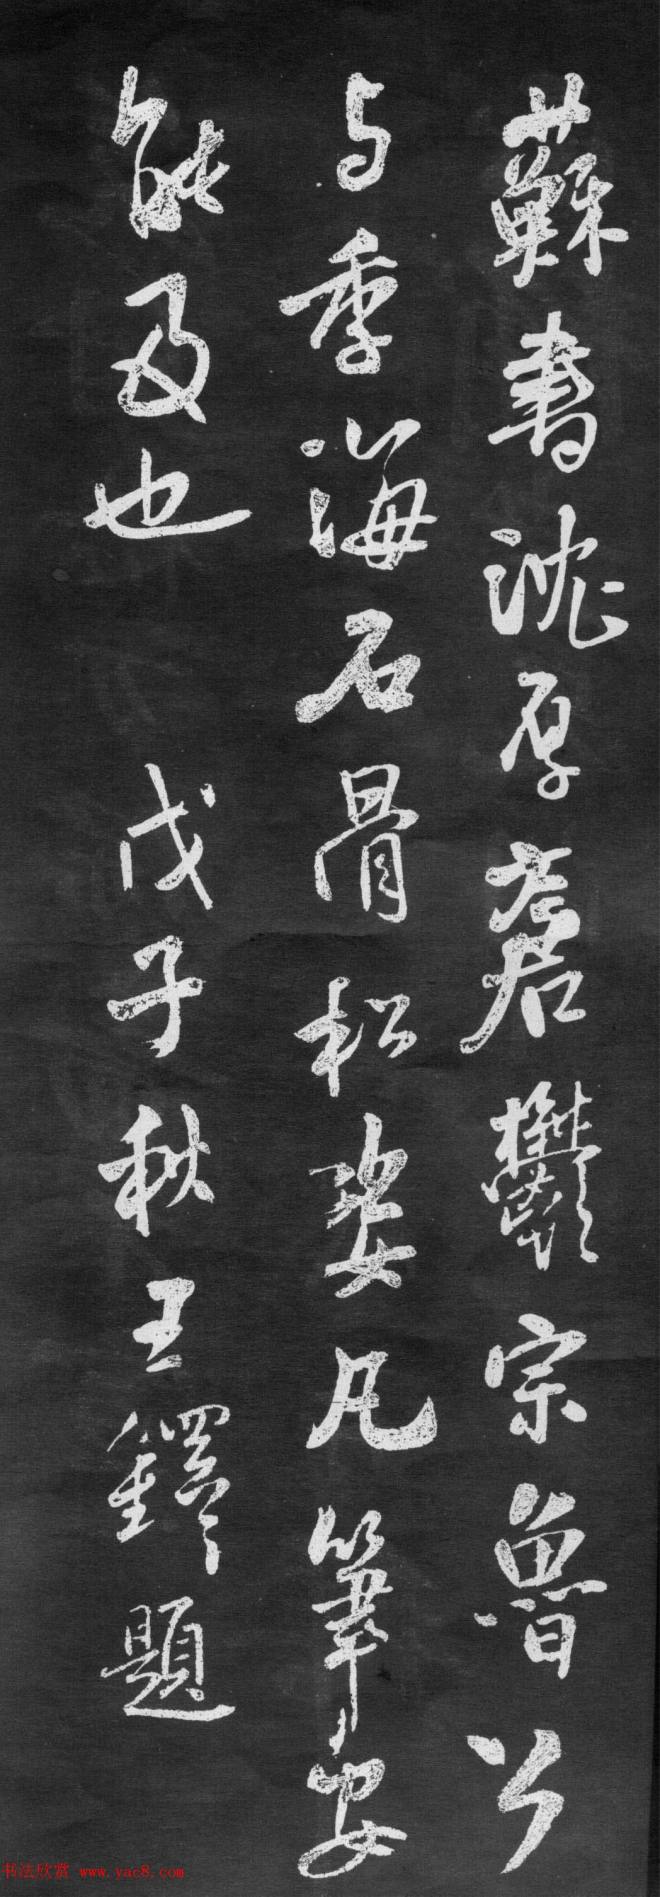 蘇書沈厚蒼鬱宗魯公
与季海石骨松姿凡筆安
能及也 戊子秋王鐸題
书法欣赏 www.yac8.com